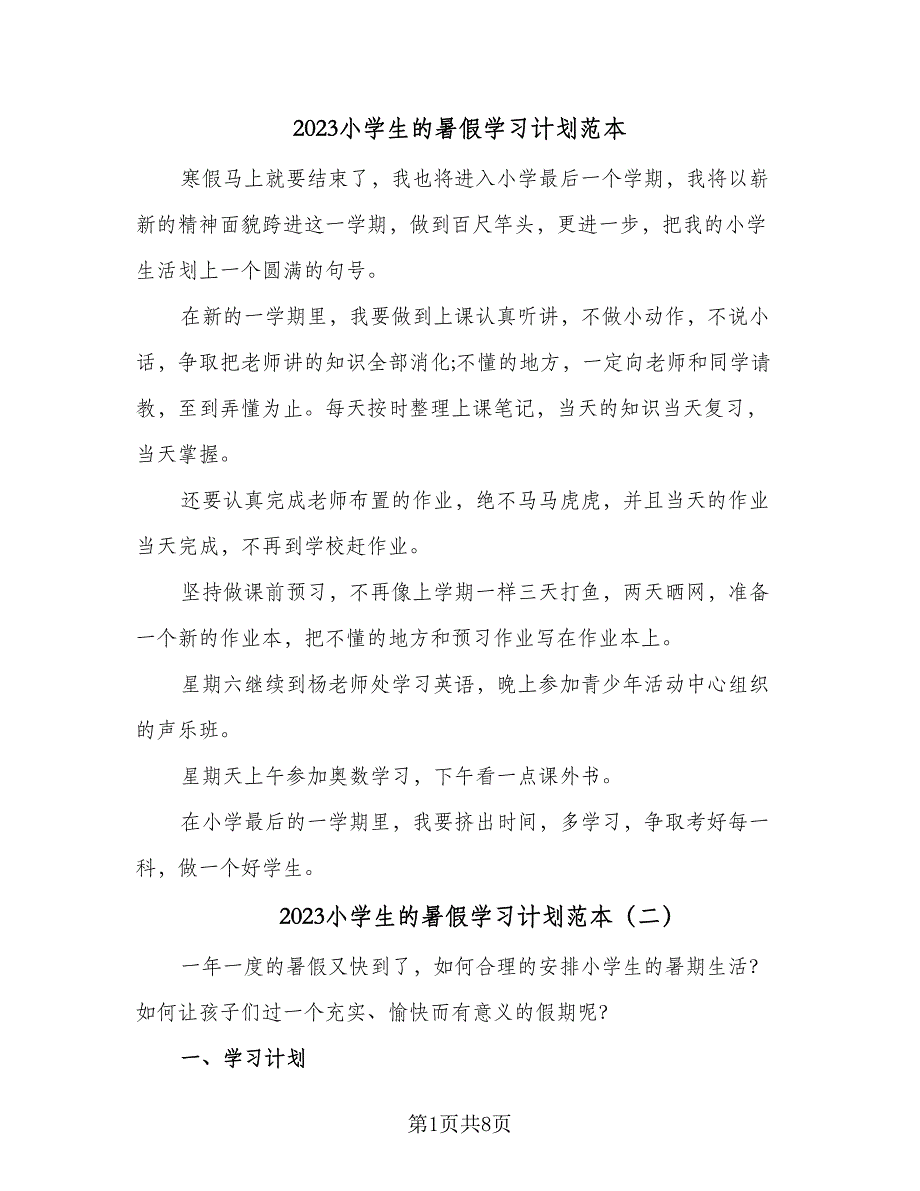 2023小学生的暑假学习计划范本
寒假马上就要结束了，我也将进入小学最后一个学期，我将以崭
新的精神面貌跨进这一学期，做到百尺竿头，更进一步，把我的小学
生活划上一个圆满的句号。
在新的一学期里，我要做到上课认真听讲，不做小动作，不说小
话，争取把老师讲的知识全部消化;不懂的地方，一定向老师和同学请
教，至到弄懂为止。每天按时整理上课笔记，当天的知识当天复习，
当天掌握。
还要认真完成老师布置的作业，绝不马马虎虎，并且当天的作业
当天完成，不再到学校赶作业。
坚持做课前预习，不再像上学期一样三天打鱼，两天晒网，准备
一个新的作业本，把不懂的地方和预习作业写在作业本上。
星期六继续到杨老师处学习英语，晚上参加青少年活动中心组织
的声乐班。
星期天上午参加奥数学习，下午看一点课外书。
在小学最后的一学期里，我要挤出时间，多学习，争取考好每一
科，做一个好学生。
2023小学生的暑假学习计划范本（二）
一年一度的暑假又快到了，如何合理的安排小学生的暑期生活？
如何让孩子们过一个充实、愉快而有意义的假期呢？
一、学习计划
第1页共8页